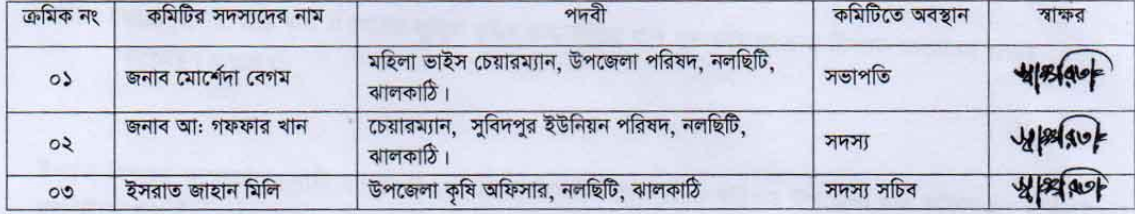 ক্রমিক নং কমিটির সদস্যদের নাম পদবী কমিটিতে অবস্থান স্বাক্ষর
০১ জনাব মোর্শেদা বেগম মহিলা ভাইস চেয়ারম্যান, উপজেলা পরিষদ, নলছিটি, ঝালকাঠি। সভাপতি স্বাক্ষরিত
০২ জনাব আঃ গফফার খান চেয়ারম্যান, সুবিদপুর ইউনিয়ন পরিষদ, নলছিটি, ঝালকাঠি। সদস্য স্বাক্ষরিত
০৩ ইসরাত জাহান মিলি উপজেলা কৃষি অফিসার, নলছিটি, ঝালকাঠি সদস্য সচিব স্বাক্ষরিত